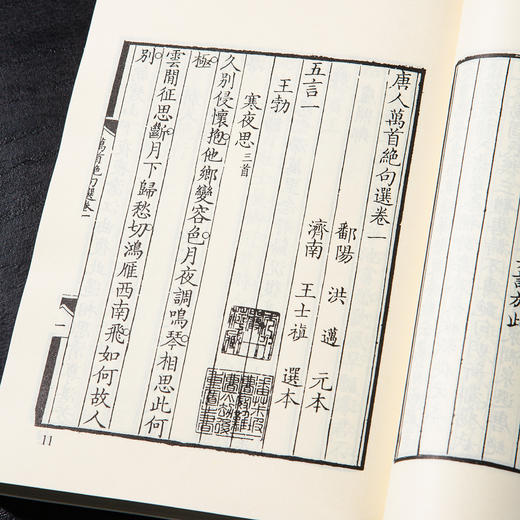 唐人萬首絕句選卷一
鄱陽 洪 邁 元本
濟南 王士禛 選本
五言一
王勃
寒夜思三首
久別侵懷抱他鄉變容色月夜調鳴琴相思此何
極
雲閒征思斷月下歸愁切鴻雁西南飛如何故人
別
萬首絕句選卷一
一
11